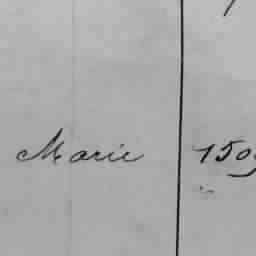 Marie 150